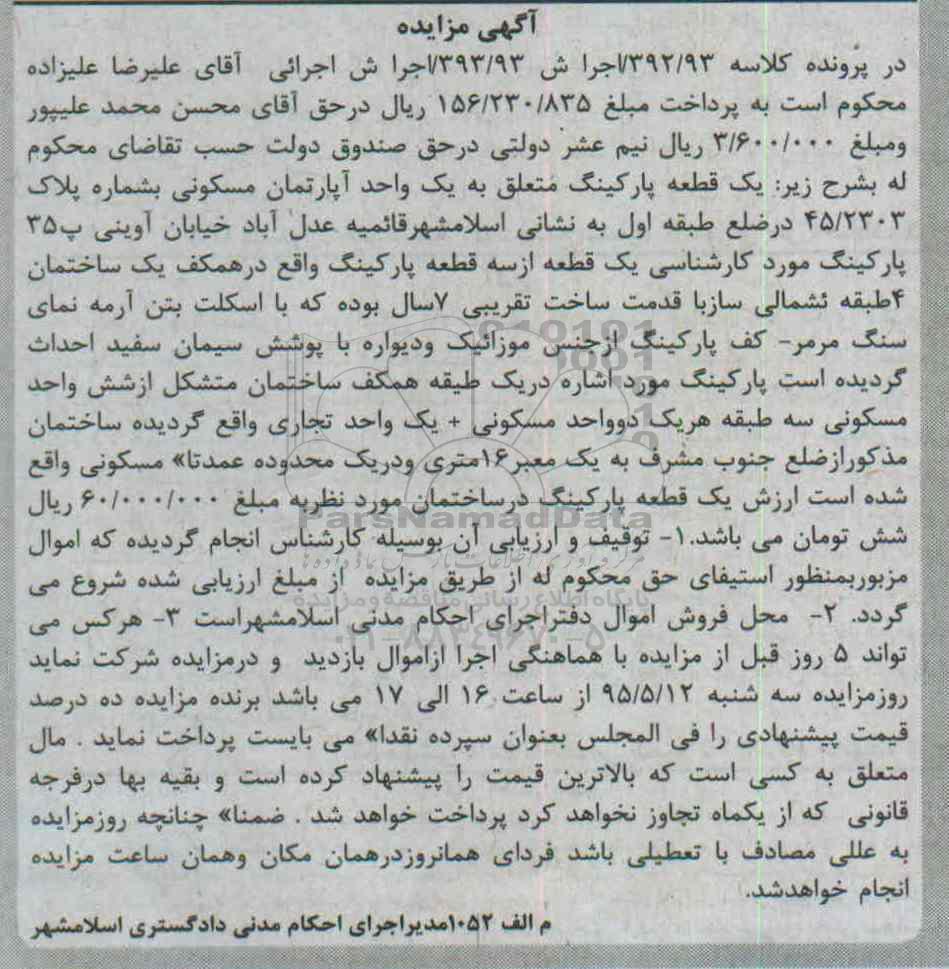 آگهی مزایده
در پرونده کلاسه ۳۹۲/۹۳/اجرا ش ۳۹۳/۹۳/اجرا ش اجرائی آقای علیرضا علیزاده
محکوم است به پرداخت مبلغ ۱۵۶/۲۳۰/۸۳۵ ریال درحق آقای محسن محمد علیپور
ومبلغ ۳/۶۰۰/۰۰۰ ریال نیم عشر دولتی درحق صندوق دولت حسب تقاضای محکوم
له بشرح زیر: یک قطعه پارکینگ متعلق به یک واحد آپارتمان مسکونی بشماره پلاک
۴۵/۲۳۰۳ درضلع طبقه اول به نشانی اسلامشهرقائمیه عدل آباد خیابان آوینی پ۳۵
پارکینگ مورد کارشناسی یک قطعه ازسه قطعه پارکینگ واقع درهمکف یک ساختمان
۴طبقه ئشمالی سازبا قدمت ساخت تقریبی ۷سال بوده که با اسکلت بتن آرمه نمای
سنگ مرمر- کف پارکینگ ازجنس موزائیک ودیواره با پوشش سیمان سفید احداث
گردیده است پارکینگ مورد اشاره دریک طیقه همکف ساختمان متشکل ازشش واحد
مسکونی سه طبقه هریک دوواحد مسکونی + یک واحد تجاری واقع گردیده ساختمان
مذکورازضلع جنوب مشرف به یک معبر۱۶متری ودریک محدوده عمدتا» مسکونی واقع
شده است ارزش یک قطعه پارکینگ درساختمان مورد نظریه مبلغ ۶۰/۰۰۰/۰۰۰ ریال
شش تومان می باشد.۱- توقیف و ارزیابی آن بوسیله کارشناس انجام گردیده که اموال
مزبوربمنظور استیفای حق محکوم له از طریق مزایده از مبلغ ارزیابی شده شروع می
گردد. ۲- محل فروش اموال دفتراجرای احکام مدنی اسلامشهراست ۳- هرکس می
تواند ۵ روز قبل از مزایده با هماهنگی اجرا ازاموال بازدید و درمزایده شرکت نماید
روزمزایده سه شنبه ۹۵/۵/۱۲ از ساعت ۱۶ الی ۱۷ می باشد برنده مزایده ده درصد
قیمت پیشنهادی را فی المجلس بعنوان سپرده نقدا» می بایست پرداخت نماید . مال
متعلق به کسی است که بالاترین قیمت را پیشنهاد کرده است و بقیه بها درفرجه
قانونی که از یکماه تجاوز نخواهد کرد پرداخت خواهد شد . ضمنا» چنانچه روزمزایده
به عللی مصادف با تعطیلی باشد فردای همانروزدرهمان مکان وهمان ساعت مزایده
انجام خواهدشد.
م الف ۱۰۵۲مدیراجرای احکام مدنی دادگستری اسلامشهر
ParsNamadData
پایگاه اطلاع رسانی مناقصه و مزایده
۰۲۱-۸۸۳۴۹۶۷۰-۵